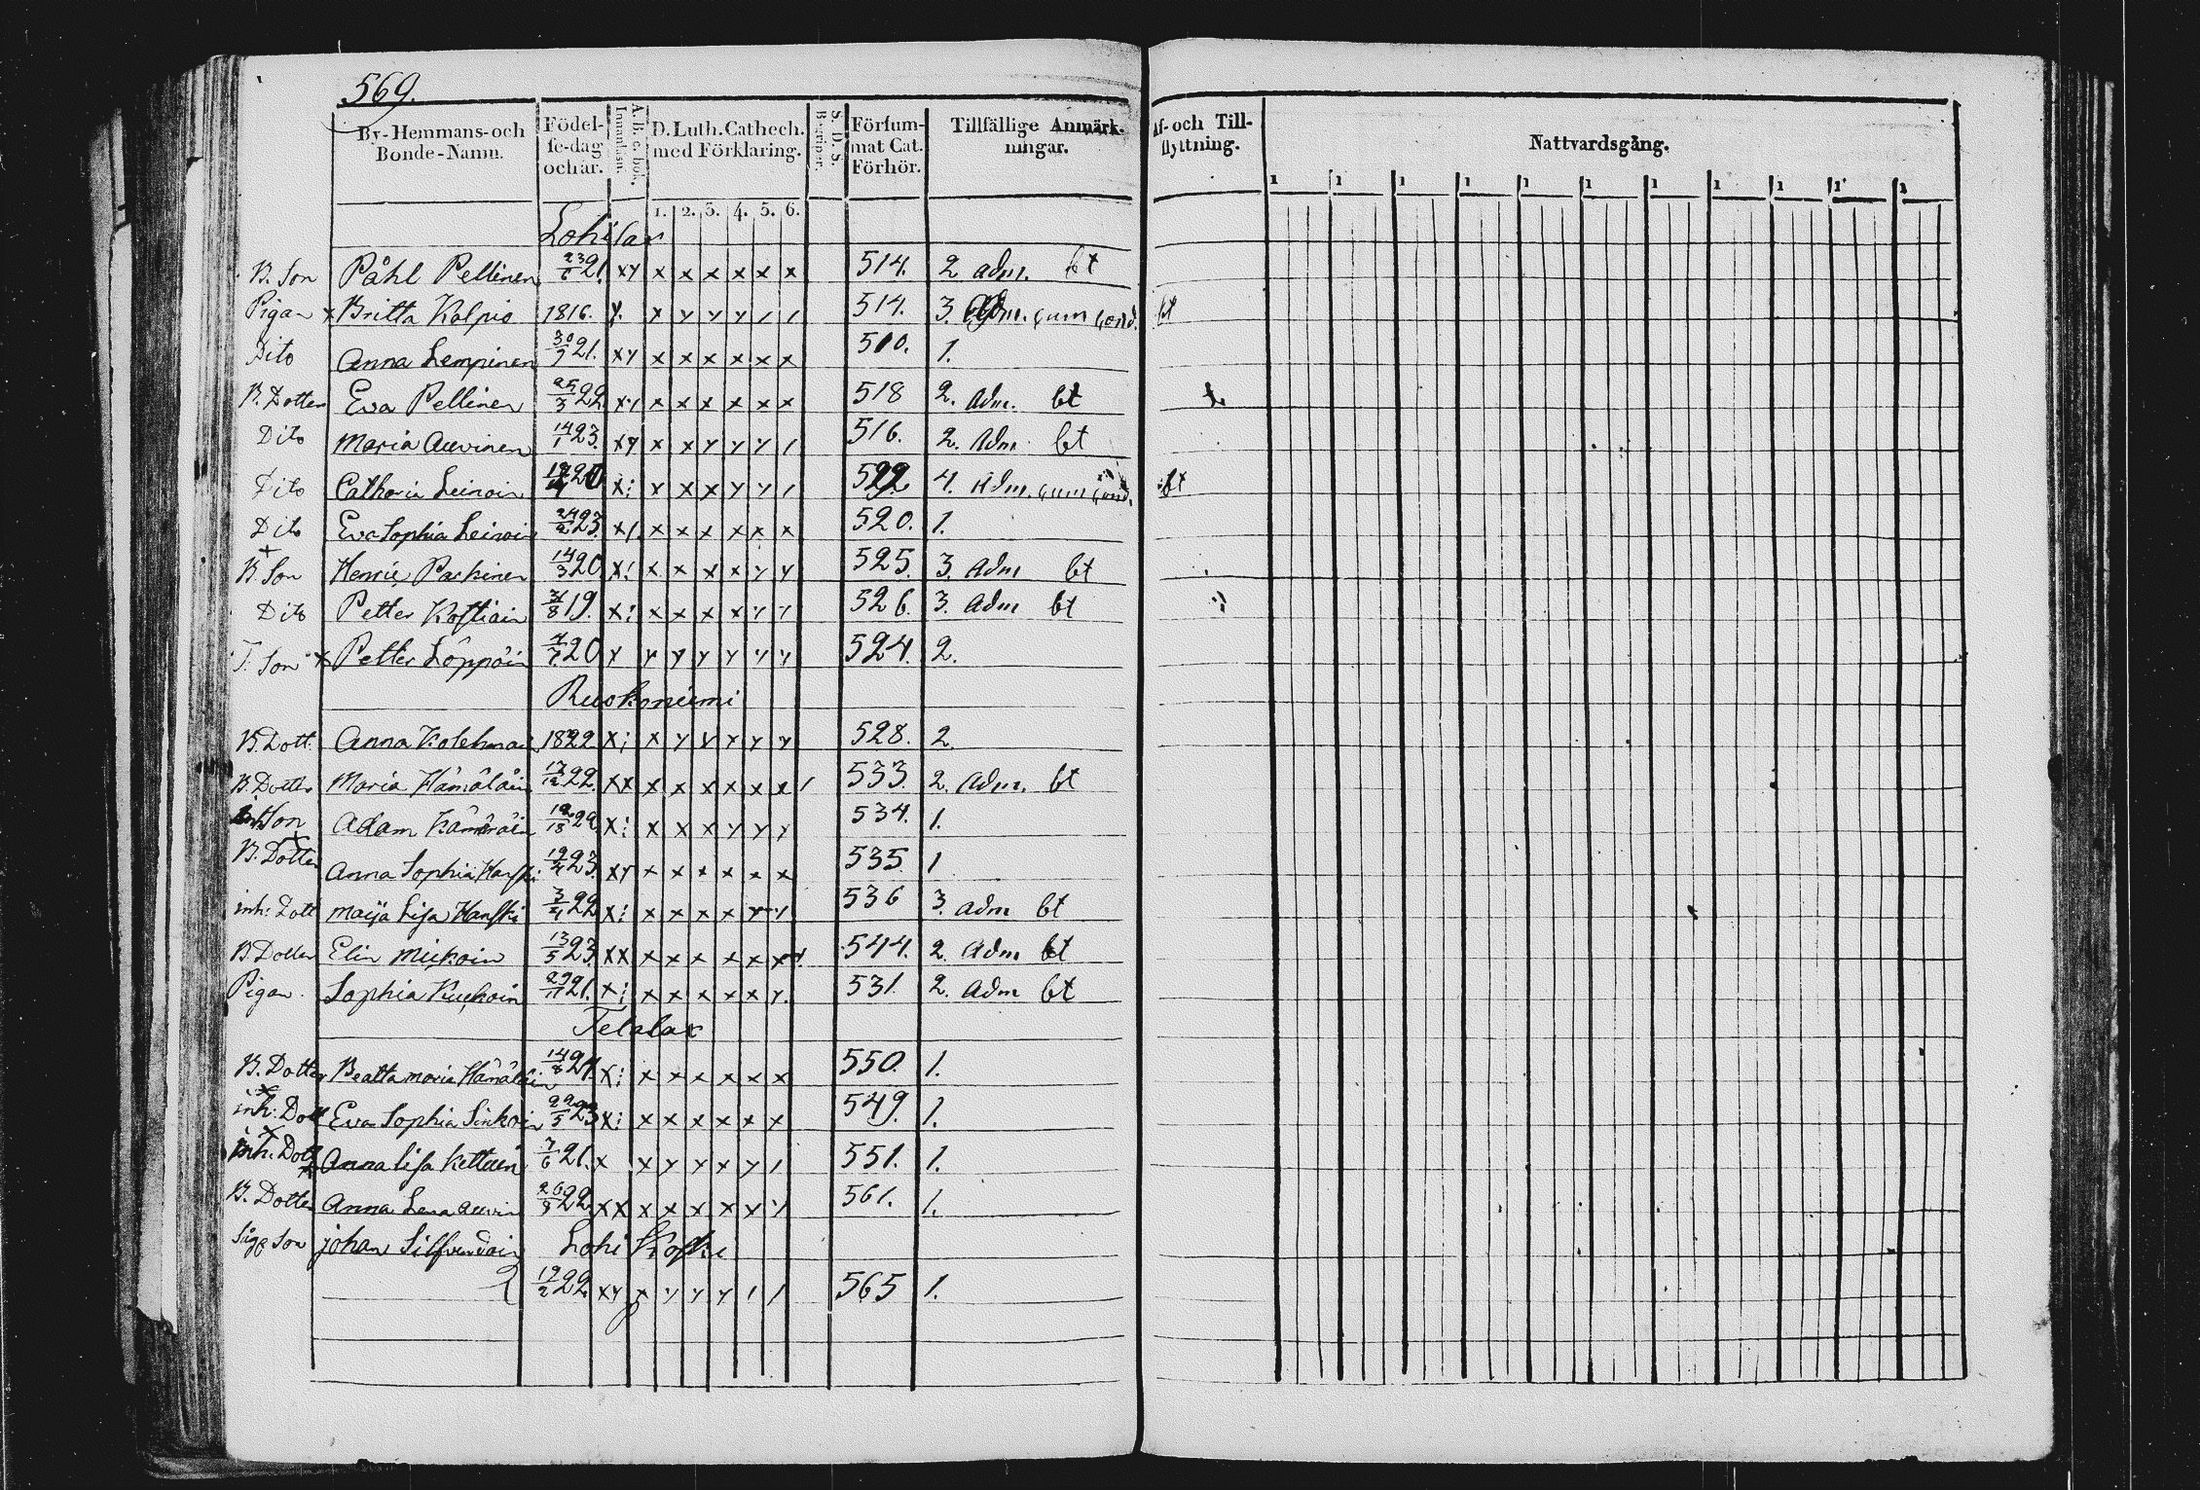 569.
By-Hemmans-och Bonde-Namn. Födel-se-dag och år. A.B.c.bok. Innanläsn. D. Luth. Cathech. med Förklaring. S.D.S. Begriper. Försum-mat Cat. Förhör. Tillfällige Anmärk-ningar. Af- och Till-flyttning. Nattvardsgång.
1. 2. 3. 4. 5. 6. 1 1 1 1 1 1 1 1 1 1 1
Lohilax
B. Son Påhl Pellinen 23/6 21. xy x x x x x x 514. 2 adm. bt
Pigan x Britta Kolpio 1816. y. x y y y / / 514. 3. Adm. cum cond. bt
Dito Anna Lempinen 30/7 21. xy x x x x x x 510. 1.
B. Dotter Eva Pellinen 25/3 22 xy x x x x x x 518 2. adm. bt t
Dito Maria Auvinen 14/1 23. xy x x y y y / 516. 2. adm bt
Dito Catharin Leinoin 20 x: y x x y y / 522 4. Adm. cum cond. bt
Dito Eva Sophia Leinoin 24/2 23. x/. x x x x x x 520. 1.
B. Son Henric Parkinen 14/3 20 x: x x x x y y 525. 3. adm bt
Dito Petter Kostiain 31/8 19. x: x x x x y y 526. 3. adm bt
T. Son x Petter Löppöin 4/7 20 y y y y y y y 524. 2.
Ruokoniemi
B. Dott. Anna Kolehma 1822 x: x y y y y y 528. 2.
B. Dotter Maria Hämäläin 17/12 22. xx x x x x x x / 533. 2. adm. bt
Son Adam 22 x: x x x y y y 534. 1.
B. Dotter Anna Sophia Hanski 19/4 23. xy x x x x x x 535 1
inh: Dott Maija Lisa Hanski 3/4 22 x: x x x x y y 536 3. adm bt
B. Dotter Elin Mickoin 13/5 23. xx x x x x x x 544. 2. adm bt
Pigan. Sophia Kuckoin 29/11 21. x: x x x x x y. 531. 2. adm bt
Telalax
B. Dotter Beatta Maria Hämäläin 14/8 21. x: x x x x x x 550. 1.
inh: Dott Eva Sophia Sinkoin 22/5 23 x: x x x x x x 549. 1.
inh: Dott x Anna Lisa 7/6 21. x x y y x y / 551. 1.
B. Dotter Anna Lena Auvin 26/8 22. xx x x x x x y 561. 1.
Son johan Lohi Koski
19/2 22. xy x y y y / / 565 1.